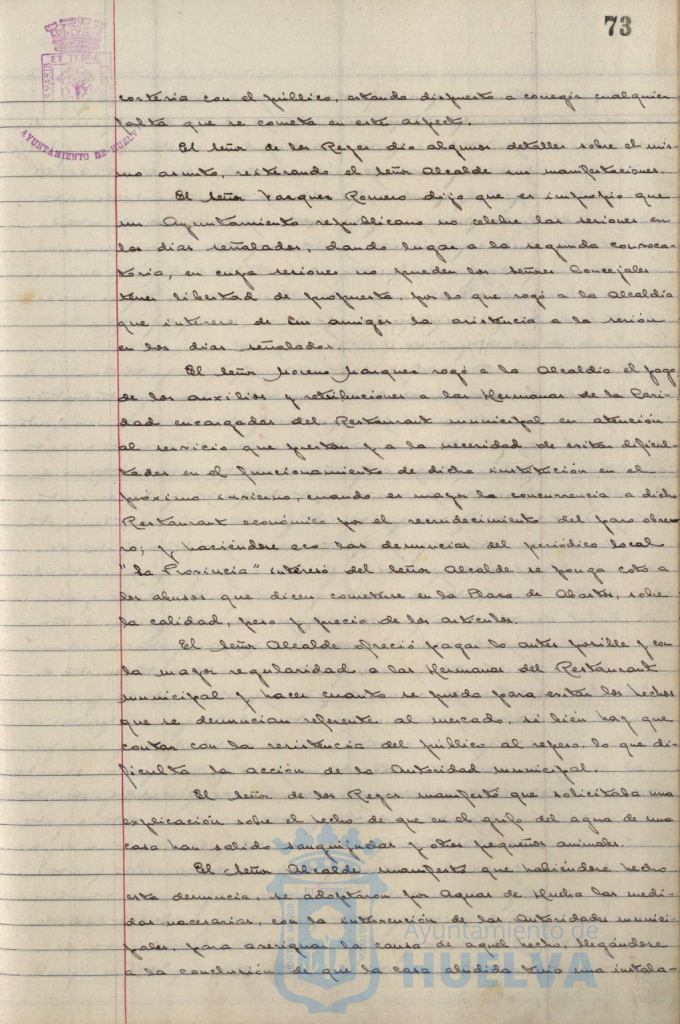 73
ET TERRE
AYUNTAMIENTO DE HUELV
cortesía con el público, estando dispuesto a corregir cualquier
falta que se cometa en este aspecto.
El Señor de los Reyes dio algunos detalles sobre el mis-
mo asunto, reiterando el Señor Alcalde sus manifestaciones.
El Señor Vazquez Romero dijo que es impropio que
un Ayuntamiento republicano no celebre las sesiones en
los días señalados, dando lugar a la segunda convoca-
toria, en cuyas sesiones no pueden los Señores Concejales
tener libertad de propuesta, por lo que rogó a la Alcaldía
que interese de sus amigos la asistencia a la sesión
en los días señalados.
El Señor Moreno Marquez rogó a la Alcaldía el pago
de los auxilios y retribuciones a las Hermanas de la Cari-
dad encargadas del Restaurant municipal en atención
al servicio que prestan y a la necesidad de evitar dificul-
tades en el funcionamiento de dicha institución en el
próximo invierno, cuando es mayor la concurrencia a dicho
Restaurant económico por el recrudecimiento del paro obre-
ro; y haciéndose eco las denuncias del periódico local
"La Provincia" interesó del Señor Alcalde se ponga coto a
los abusos que dicen cometerse en la Plaza de Abastos, sobre
la calidad, peso y precio de los artículos.
El Señor Alcalde ofreció pagar lo antes posible y con
la mayor regularidad a las Hermanas del Restaurant
municipal y hacer cuanto se pueda para evitar los hechos
que se denuncian referente al mercado, si bien hay que
contar con la resistencia del público al repeso, lo que di-
ficulta la acción de la Autoridad municipal.
El Señor de los Reyes manifestó que solicitaba una
explicación sobre el hecho de que en el grifo del agua de una
casa han salido sanguijuelas y otros pequeños animales.
El Señor Alcalde manifestó que habiéndose hecho
esta denuncia, se adoptaron por Aguas de Huelva las medi-
das necesarias, con la intervención de las Autoridades munici-
pales, para averiguar la causa de aquel hecho, llegándose
a la conclusión de que la casa aludida tenía una instala-
Ayuntamiento de
HUELVA